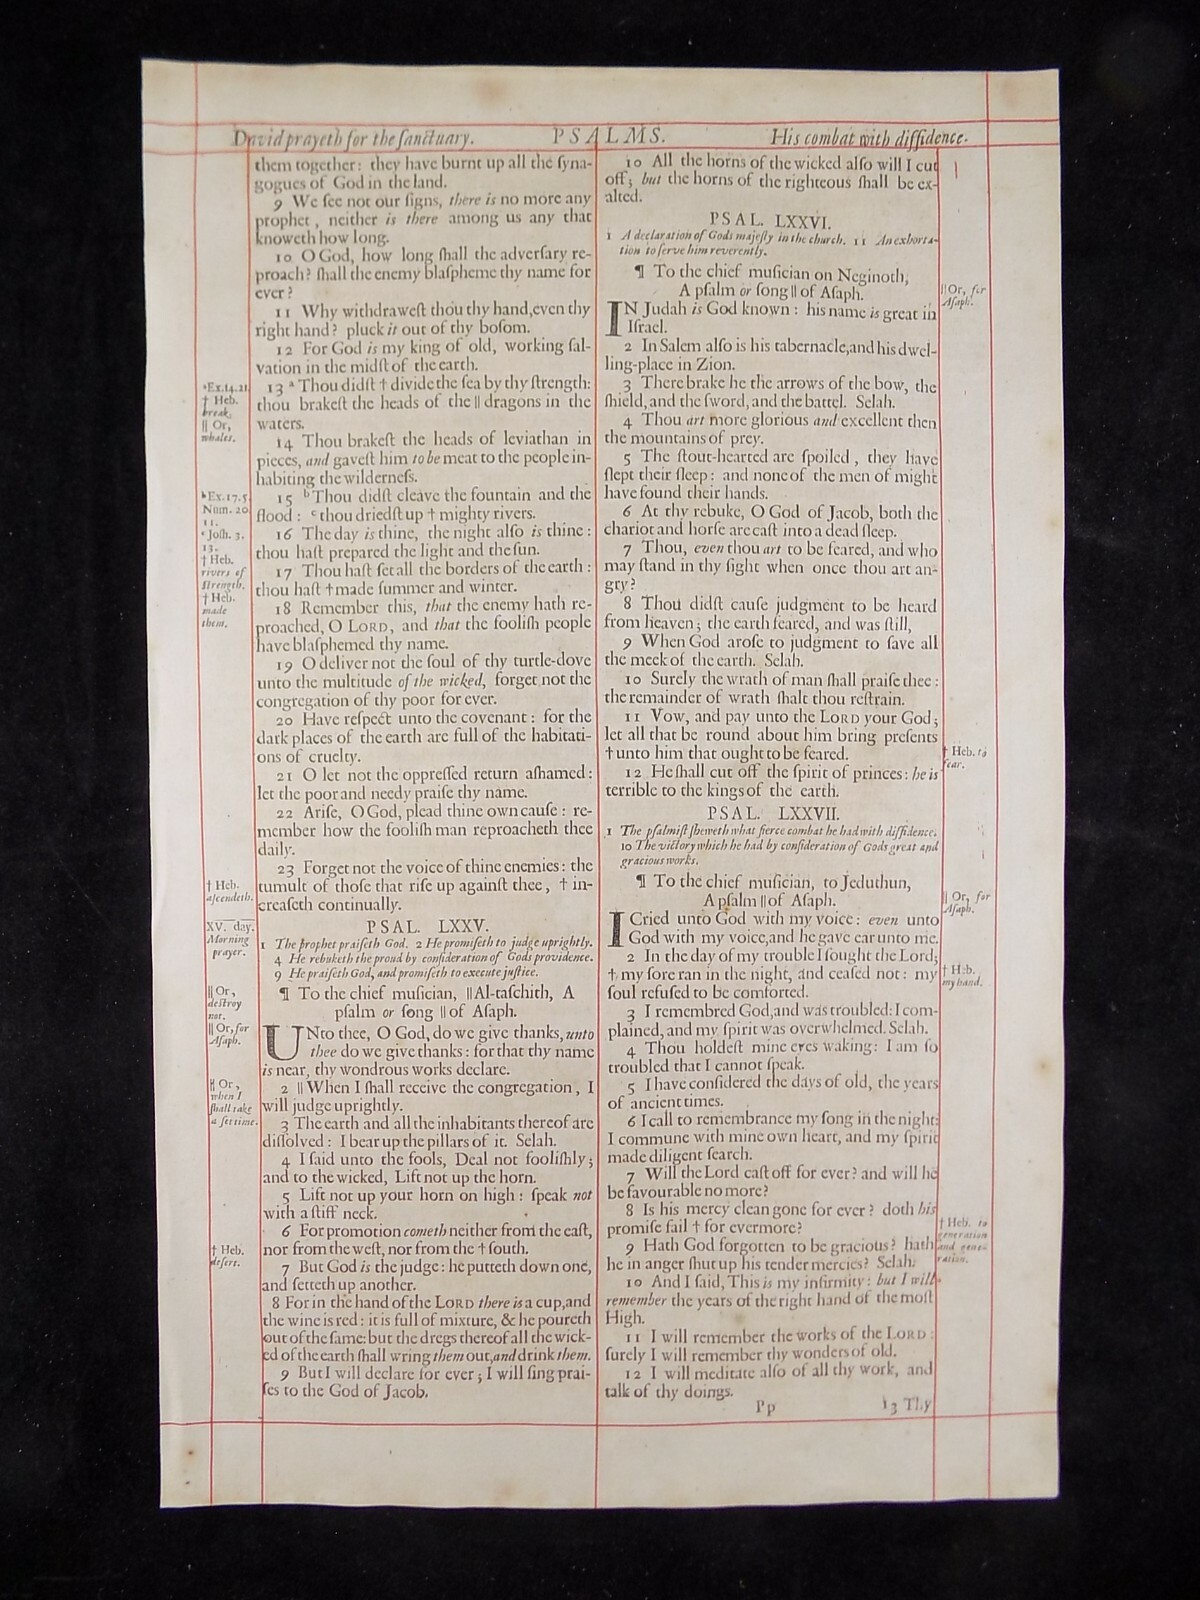 David prayeth for the ſanctuary. PSALMS. His combat with diffidence.
them together: they have burnt up all the ſyna-
gogues of God in the land.
9 We ſee not our ſigns, there is no more any
prophet, neither is there among us any that
knoweth how long.
10 O God, how long ſhall the adverſary re-
proach? ſhall the enemy blaſpheme thy name for
ever?
11 Why withdraweſt thou thy hand, even thy
right hand? pluck it out of thy boſom.
12 For God is my king of old, working ſal-
vation in the midſt of the earth.
13 ᵃ Thou didſt † divide the ſea by thy ſtrength:
thou brakeſt the heads of the || dragons in the
waters.
14 Thou brakeſt the heads of leviathan in
pieces, and gaveſt him to be meat to the people in-
habiting the wilderneſs.
15 ᵇ Thou didſt cleave the fountain and the
flood: ᶜ thou driedſt up † mighty rivers.
16 The day is thine, the night alſo is thine:
thou haſt prepared the light and the ſun.
17 Thou haſt ſet all the borders of the earth:
thou haſt † made ſummer and winter.
18 Remember this, that the enemy hath re-
proached, O LORD, and that the fooliſh people
have blaſphemed thy name.
19 O deliver not the ſoul of thy turtle-dove
unto the multitude of the wicked, forget not the
congregation of thy poor for ever.
20 Have reſpect unto the covenant: for the
dark places of the earth are full of the habitati-
ons of cruelty.
21 O let not the oppreſſed return aſhamed:
let the poor and needy praiſe thy name.
22 Ariſe, O God, plead thine own cauſe: re-
member how the fooliſh man reproacheth thee
daily.
23 Forget not the voice of thine enemies: the
tumult of thoſe that riſe up againſt thee, † in-
creaſeth continually.
PSAL. LXXV.
1 The prophet praiſeth God. 2 He promiſeth to judge uprightly.
4 He rebuketh the proud by conſideration of Gods providence.
9 He praiſeth God, and promiſeth to execute juſtice.
¶ To the chief muſician, || Al-taſchith, A
pſalm or ſong || of Aſaph.
UNto thee, O God, do we give thanks, unto
thee do we give thanks: for that thy name
is near, thy wondrous works declare.
2 || When I ſhall receive the congregation, I
will judge uprightly.
3 The earth and all the inhabitants thereof are
diſſolved: I bear up the pillars of it. Selah.
4 I ſaid unto the fools, Deal not fooliſhly;
and to the wicked, Lift not up the horn.
5 Lift not up your horn on high: ſpeak not
with a ſtiff neck.
6 For promotion cometh neither from the eaſt,
nor from the weſt, nor from the † ſouth.
7 But God is the judge: he putteth down one,
and ſetteth up another.
8 For in the hand of the LORD there is a cup, and
the wine is red: it is full of mixture, & he poureth
out of the ſame: but the dregs thereof all the wick-
ed of the earth ſhall wring them out, and drink them.
9 But I will declare for ever; I will ſing prai-
ſes to the God of Jacob.
ᵃ Ex. 14. 21
† Heb.
break.
|| Or,
whales.
ᵇ Ex. 17. 5.
Num. 20.
11.
ᶜ Joſh. 3.
13.
† Heb.
rivers of
ſtrength.
† Heb.
made
them.
† Heb.
aſcendeth.
XV. day.
Morning
prayer.
|| Or,
deſtroy
not.
|| Or, for
Aſaph.
|| Or,
when I
ſhall take
a ſet time.
† Heb.
deſert.
10 All the horns of the wicked alſo will I cut
off; but the horns of the righteous ſhall be ex-
alted.
PSAL. LXXVI.
1 A declaration of Gods majeſty in the church. 11 An exhorta-
tion to ſerve him reverently.
¶ To the chief muſician on Neginoth,
A pſalm or ſong || of Aſaph.
IN Judah is God known: his name is great in
Iſrael.
2 In Salem alſo is his tabernacle, and his dwel-
ling-place in Zion.
3 There brake he the arrows of the bow, the
ſhield, and the ſword, and the battel. Selah.
4 Thou art more glorious and excellent then
the mountains of prey.
5 The ſtout-hearted are ſpoiled, they have
ſlept their ſleep: and none of the men of might
have found their hands.
6 At thy rebuke, O God of Jacob, both the
chariot and horſe are caſt into a dead ſleep.
7 Thou, even thou art to be feared, and who
may ſtand in thy ſight when once thou art an-
gry?
8 Thou didſt cauſe judgment to be heard
from heaven; the earth feared, and was ſtill,
9 When God aroſe to judgment to ſave all
the meek of the earth. Selah.
10 Surely the wrath of man ſhall praiſe thee:
the remainder of wrath ſhalt thou reſtrain.
11 Vow, and pay unto the LORD your God;
let all that be round about him bring preſents
† unto him that ought to be feared.
12 He ſhall cut off the ſpirit of princes: he is
terrible to the kings of the earth.
PSAL. LXXVII.
1 The pſalmiſt ſheweth what fierce combat he had with diffidence.
10 The victory which he had by conſideration of Gods great and
gracious works.
¶ To the chief muſician, to Jeduthun,
A pſalm || of Aſaph.
I Cried unto God with my voice: even unto
God with my voice, and he gave ear unto me.
2 In the day of my trouble I ſought the Lord;
† my ſore ran in the night, and ceaſed not: my
ſoul refuſed to be comforted.
3 I remembred God, and was troubled: I com-
plained, and my ſpirit was overwhelmed. Selah.
4 Thou holdeſt mine eyes waking: I am ſo
troubled that I cannot ſpeak.
5 I have conſidered the days of old, the years
of ancient times.
6 I call to remembrance my ſong in the night:
I commune with mine own heart, and my ſpirit
made diligent ſearch.
7 Will the Lord caſt off for ever? and will he
be favourable no more?
8 Is his mercy clean gone for ever? doth his
promiſe fail † for evermore?
9 Hath God forgotten to be gracious? hath
he in anger ſhut up his tender mercies? Selah.
10 And I ſaid, This is my infirmity: but I will
remember the years of the right hand of the moſt
High.
11 I will remember the works of the LORD:
ſurely I will remember thy wonders of old.
12 I will meditate alſo of all thy work, and
talk of thy doings.
Pp 13 Thy
|| Or, for
Aſaph.
† Heb. to
fear.
|| Or, for
Aſaph.
† Heb.
my hand.
† Heb. to
generation
and gene-
ration.